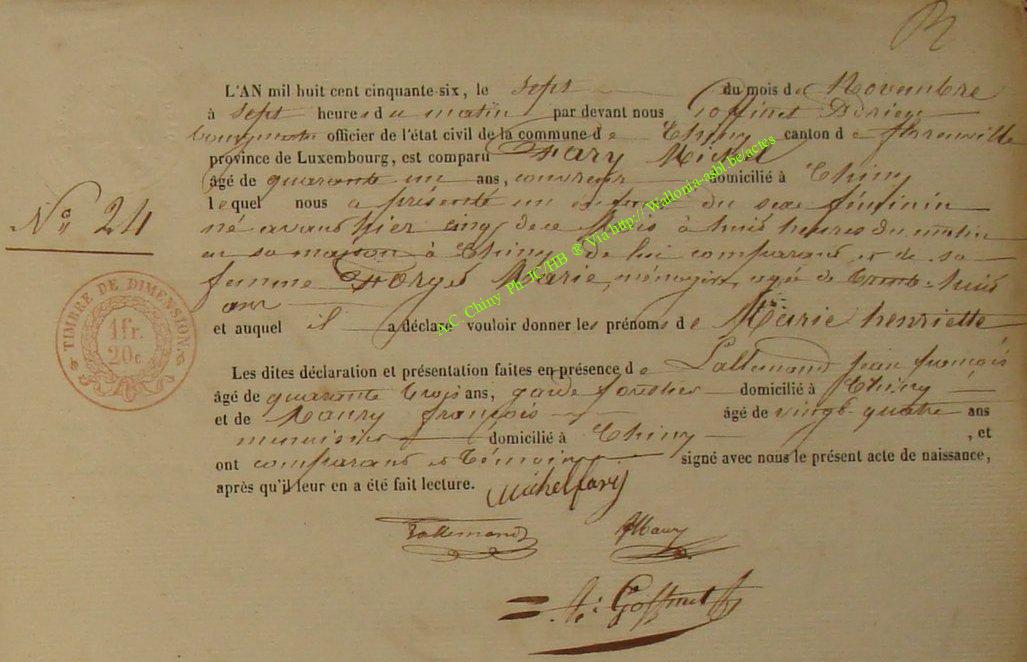 L'AN mil huit cent cinquante-six, le sept du mois de Novembre
à sept heures du matin par devant nous Goffinet Adrien
Bourgmestre officier de l'état civil de la commune de Chiny canton de florenville
province de Luxembourg, est comparu Fary Michel
âgé de quarante un ans, couvreur domicilié à Chiny
lequel nous a présenté un enfant du sexe féminin
né avant hier cinq de ce Mois à huit heures du matin
en sa maison à Chiny de lui comparant et de sa
femme Forget Marie, ménagère, agée de trente-huit
ans
et auquel il a déclaré vouloir donner les prénoms de Marie henriette
Les dites déclaration et présentation faites en présence de Lallemand Jean françois
âgé de quarante trois ans, garde forestier domicilié à Chiny
et de Maury françois âgé de vingt-quatre ans
menuisier domicilié à Chiny, et
ont comparant et témoins signé avec nous le présent acte de naissance,
après qu'il leur en a été fait lecture.
Michel fary
Lallemand Maury
Goffinet
N° 24
TIMBRE DE DIMENSION.
1 fr.
20 c.
A.C Chiny Ph JC/HB ® Via http://Wallonia-asbl.be/actes